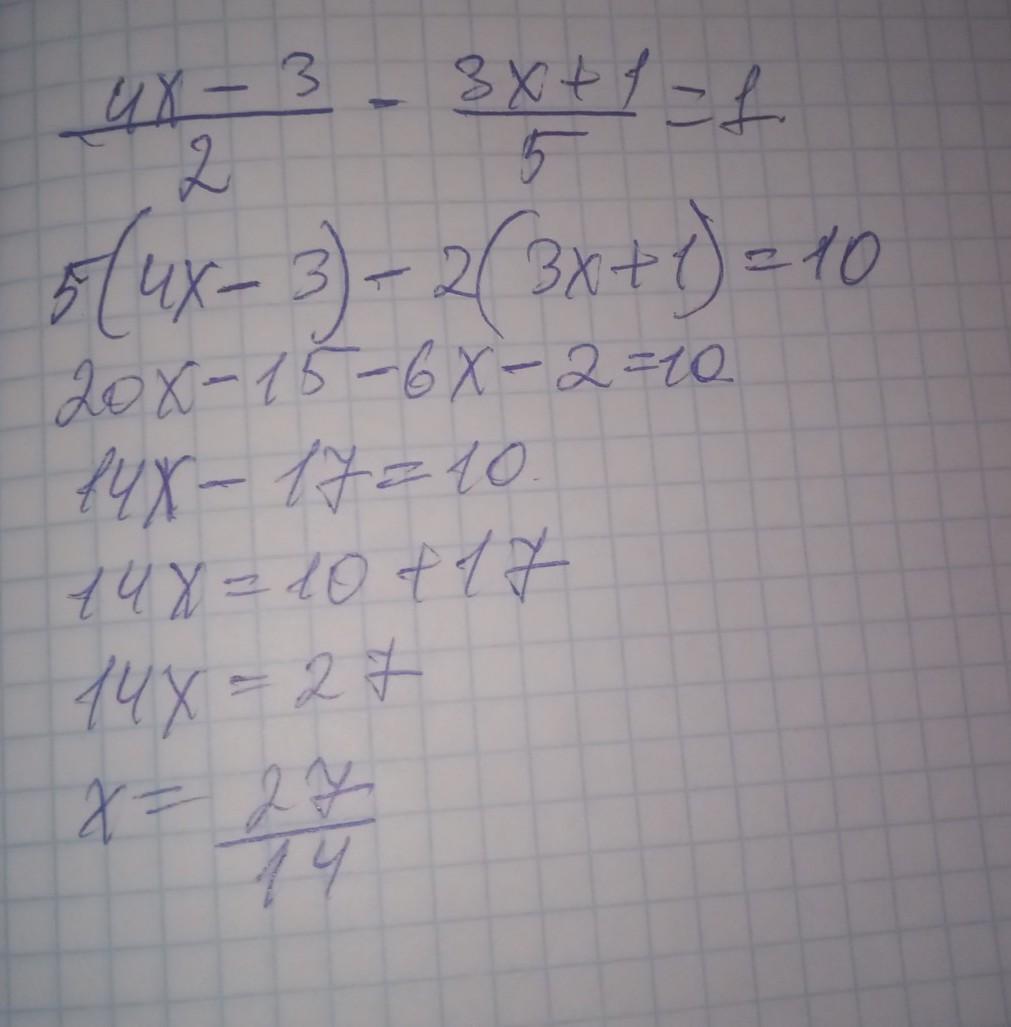 (4x - 3)/2 - (3x + 1)/5 = 1
5(4x - 3) - 2(3x + 1) = 10
20x - 15 - 6x - 2 = 10
14x - 17 = 10
14x = 10 + 17
14x = 27
x = 27/14